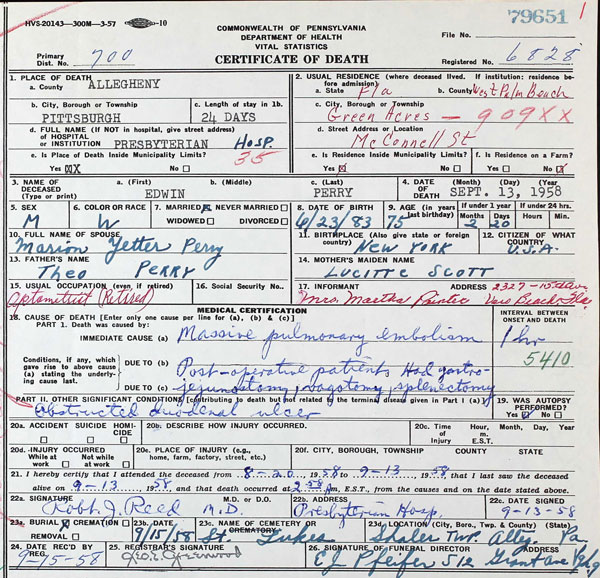 HVS-20143—300M—3-57 -10
COMMONWEALTH OF PENNSYLVANIA
DEPARTMENT OF HEALTH
VITAL STATISTICS
CERTIFICATE OF DEATH
79651 1
File No.
Primary Dist. No. 700
Registered No. 6828
1. PLACE OF DEATH
a. County ALLEGHENY
2. USUAL RESIDENCE (where deceased lived. If institution: residence before admission)
a. State Fla b. County West Palm Beach
b. City, Borough or Township PITTSBURGH
c. Length of stay in 1b. 24 DAYS
c. City, Borough or Township Green Acres - 909XX
d. FULL NAME (If NOT in hospital, give street address) OF HOSPITAL OR INSTITUTION PRESBYTERIAN HOSP. 35
d. Street Address or Location McConnell St
e. Is Place of Death Inside Municipality Limits? YES X NO
e. Is Residence Inside Municipality Limits? YES X NO
f. Is Residence on a Farm? YES NO X
3. NAME OF DECEASED (Type or print)
a. (First) EDWIN b. (Middle) c. (Last) PERRY
4. DATE OF DEATH (Month) (Day) (Year) SEPT. 13, 1958
5. SEX M
6. COLOR OR RACE W
7. MARRIED X NEVER MARRIED WIDOWED DIVORCED
8. DATE OF BIRTH 6/23/83
9. AGE (in years last birthday) 75
If under 1 year Months 2 Days 20
If under 24 hrs. Hours Min.
10. FULL NAME OF SPOUSE Marion Yetter Perry
11. BIRTHPLACE (Also give state or foreign country) NEW YORK
12. CITIZEN OF WHAT COUNTRY U.S.A.
13. FATHER'S NAME Theo PERRY
14. MOTHER'S MAIDEN NAME LUCITTE SCOTT
15. USUAL OCCUPATION (even, if retired) Optometrist (Retired)
16. Social Security No.
17. INFORMANT Mrs. Martha
ADDRESS 2327-15th Ave Vero Beach, Fla.
MEDICAL CERTIFICATION
18. CAUSE OF DEATH [Enter only one cause per line for (a), (b) & (c)]
INTERVAL BETWEEN ONSET AND DEATH
PART 1. Death was caused by:
IMMEDIATE CAUSE (a) Massive pulmonary embolism 1 hr
5410
Conditions, if any, which gave rise to above cause (a) stating the underlying cause last.
DUE TO (b) Post-operative patients Had gastro-
DUE TO (c) jejunostomy, vagotomy, splenectomy
PART II. OTHER SIGNIFICANT CONDITIONS (contributing to death but not related to the terminal disease given in Part 1 (a))
Obstructed duodenal ulcer
19. WAS AUTOPSY PERFORMED? YES NO
20a. ACCIDENT SUICIDE HOMICIDE
20b. DESCRIBE HOW INJURY OCCURRED.
20c. Time of Injury Hour m. E.S.T. Month, Day, Year
20d. INJURY OCCURRED While at work Not while at work
20e. PLACE OF INJURY (e.g., home, farm, factory, street, etc.)
20f. CITY, BOROUGH, TOWNSHIP COUNTY STATE
21. I hereby certify that I attended the deceased from 8-20, 1958 to 9-13, 1958 that I last saw the deceased
alive on 9-13, 1958 and that death occurred at 2:58 pm, E.S.T., from the causes and on the date stated above.
22a. SIGNATURE Robt. J. Reed M.D. or D.O. M.D.
22b. ADDRESS Presbyterian Hosp.
22c. DATE SIGNED 9-13-58
23a. BURIAL X CREMATION REMOVAL
23b. DATE 9/15/58
23c. NAME OF CEMETERY or CREMATORY St. Lukes
23d. LOCATION (City, Boro, Twp. & County) (State) Shaler Twp. Alleg. Pa
24. DATE REC'D BY REG. 9-15-58
25. REGISTRAR'S SIGNATURE
26. SIGNATURE OF FUNERAL DIRECTOR ADDRESS
E J Pfeifer 512 Grant Ave Pgh 9